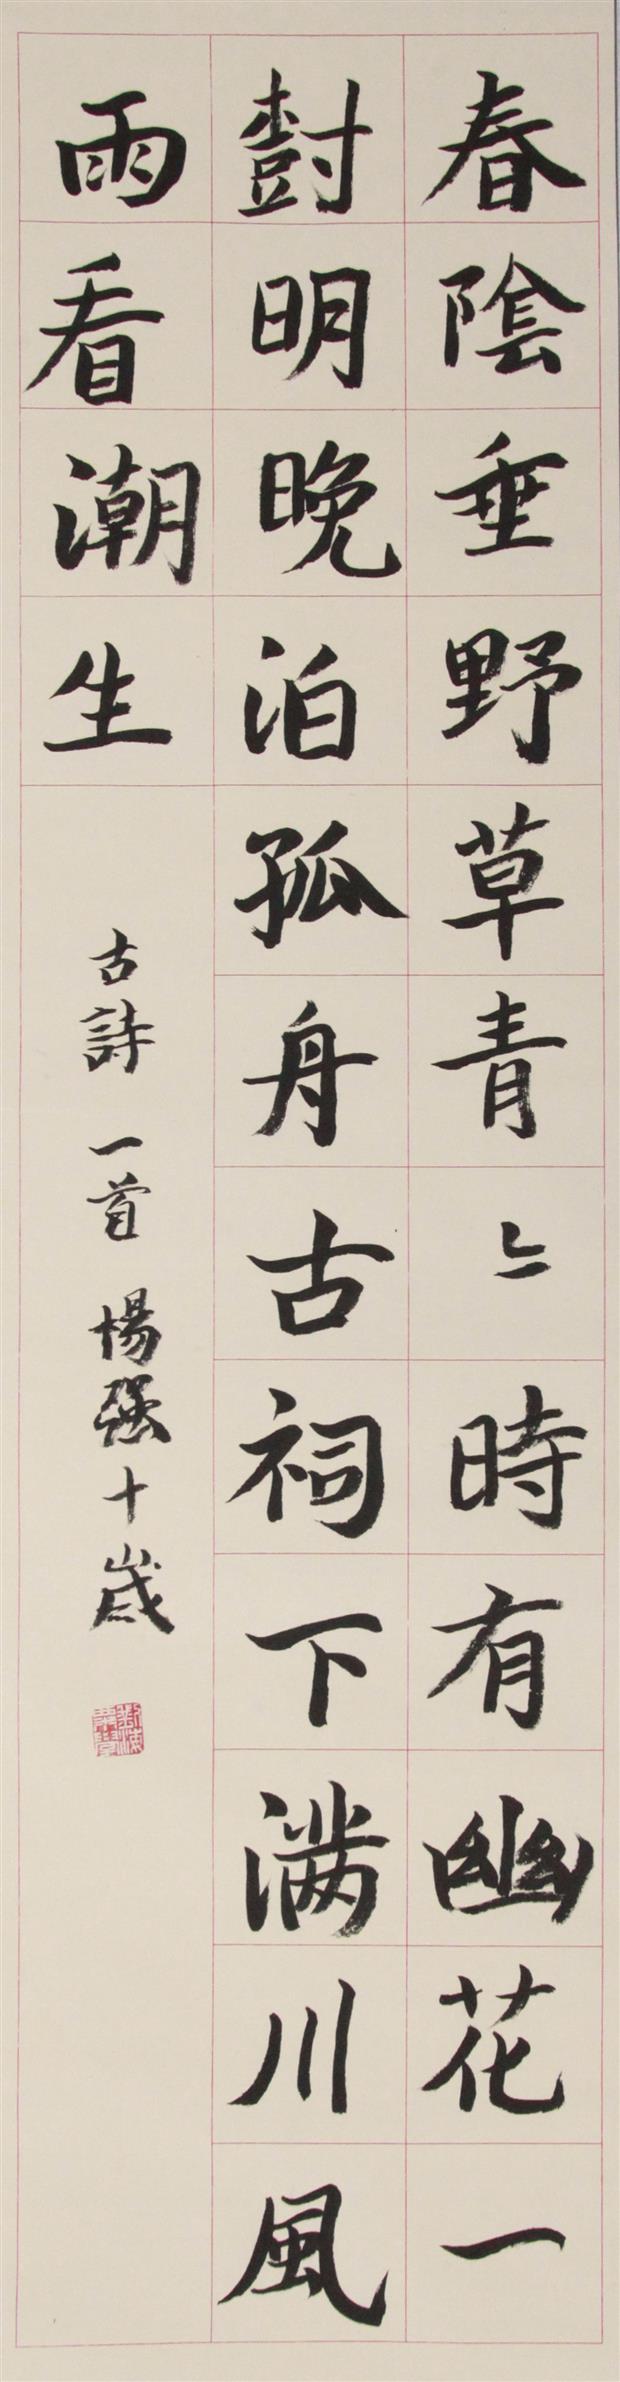 春陰垂野草青〻時有幽花一
尌明晚泊孤舟古祠下滿川風
雨看潮生
古詩一首 楊强十歲